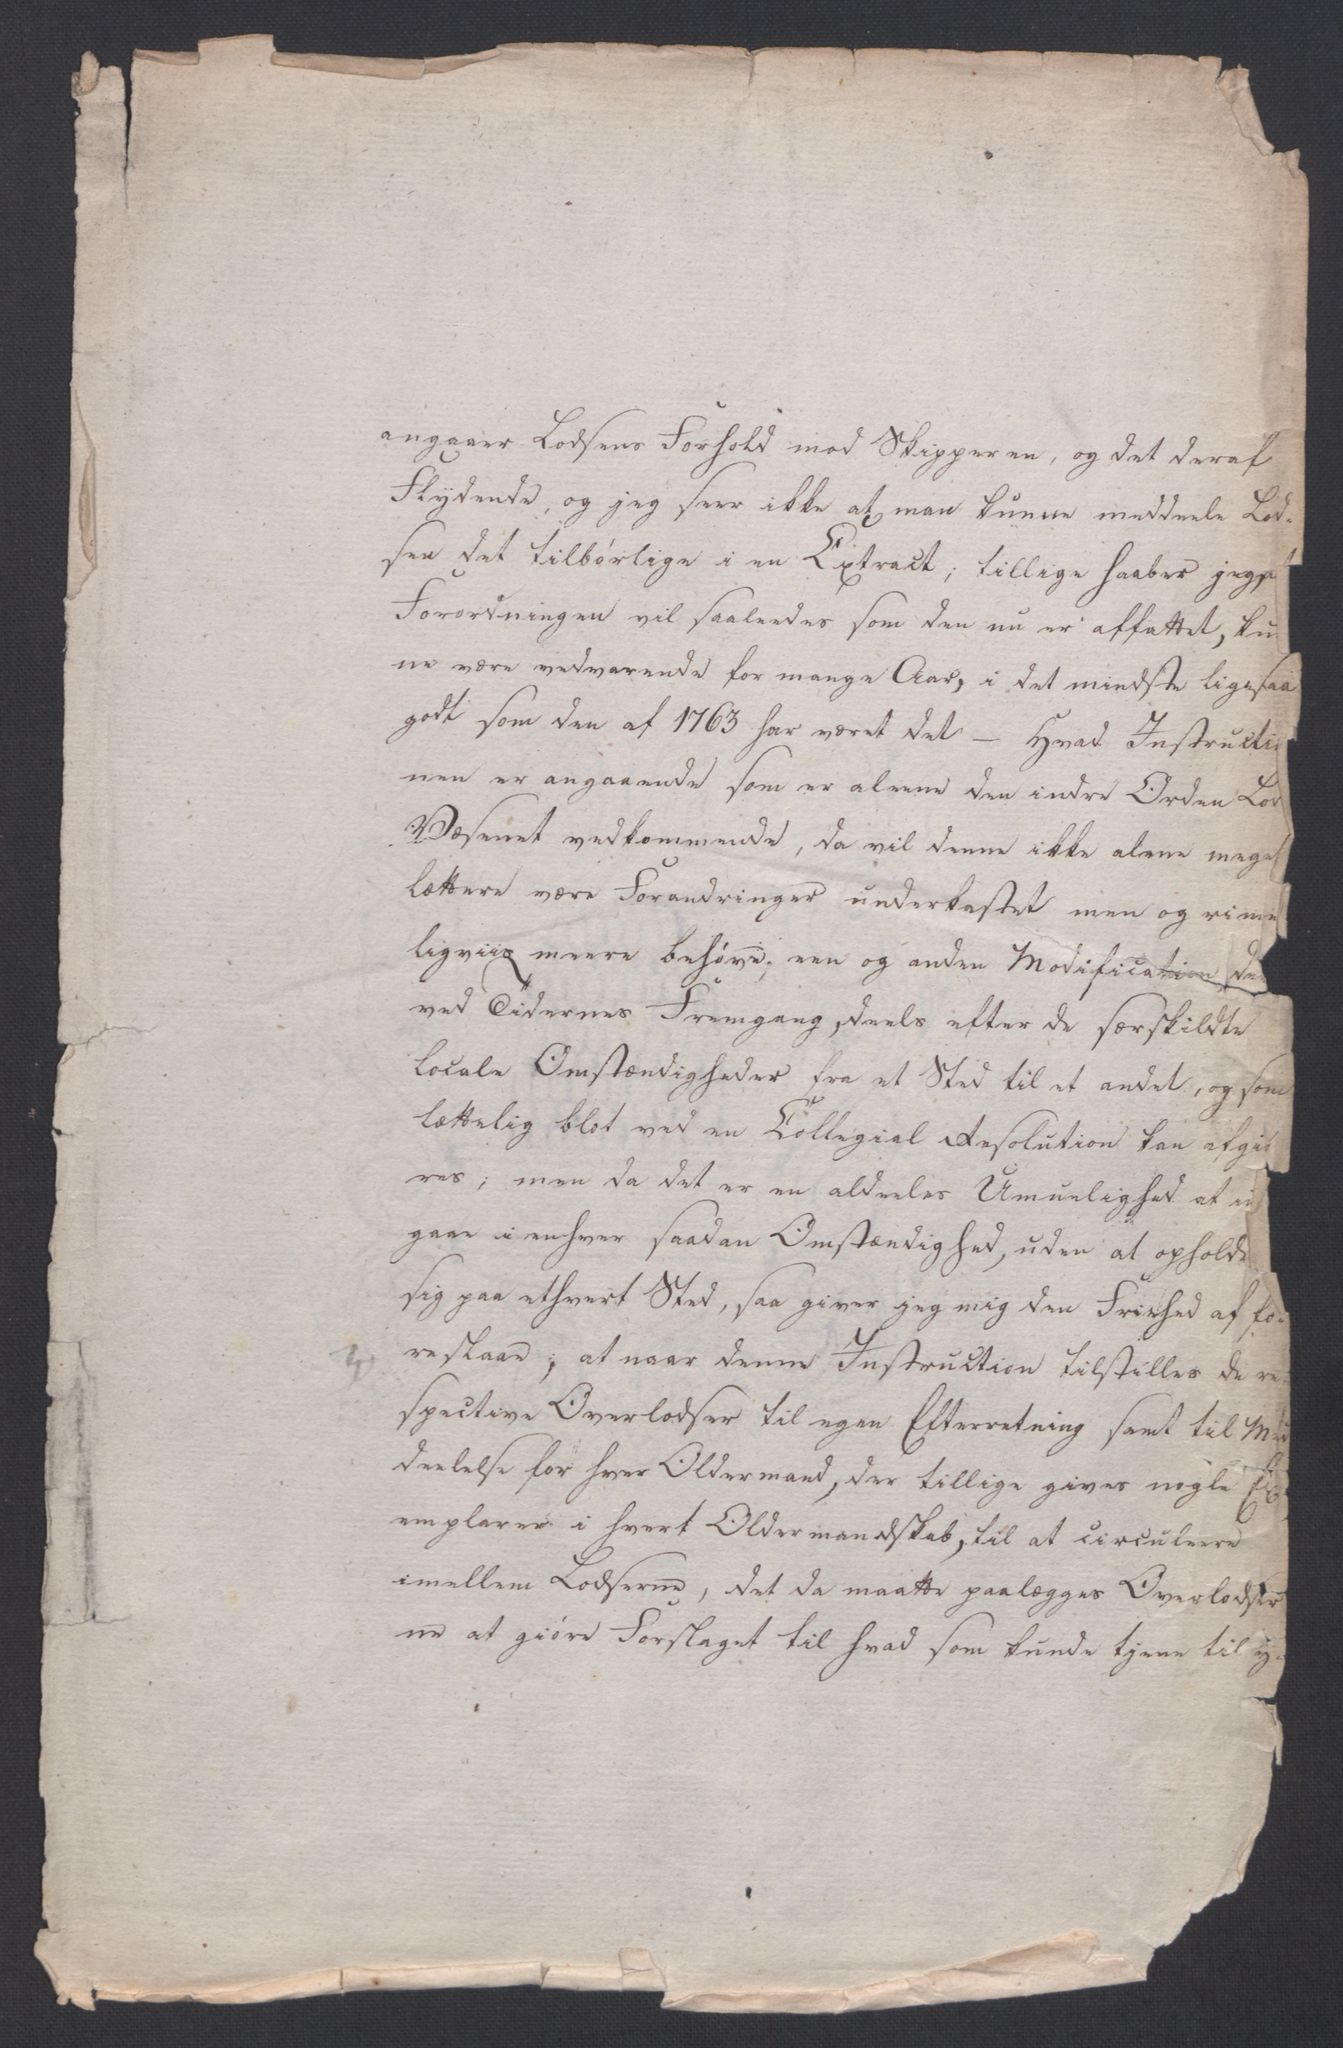 angaaer Lodsens Forhold mod Skipperen, og det deraf
Flydende, og jeg seer ikke at man kunne meddeele Lod-
sen det tilbórlige i en Extract; tillige haaber jeg, at
Forordningen vil saaleedes som den nu er affattet, kun
ne være vedvarende for mange Aar, i det mindste ligesaa
godt som den af 1763 har været det — Hvad Instructio
nen er angaaende som er aleene den indre Orden Lods
Væsenet vedkommende, da vil denne ikke alene meget
lættere være Forandringer underkastet men og rime
ligviis meere behóve, een og anden Modification deels
ved Tidernes Fremgang, deels efter de særskildte
locale Omstændigheder fra et Sted til et andet, og som
lættelig blot ved en Collegial Resolution kan afgió
res; men da det er en aldeeles Umuelighed at ind
gaae i enhver saadan Omstændighed, uden at opholde
sig paa ethvert Sted, saa giver jeg mig den Friehed at fo-
reslaae; at naar denne Instruction tilstilles de re-
spective Overlodser til egen Efterretning samt til Med
deelelse for hver Oldermand, der tillige gives nogle Ex
emplarer i hvert Oldermandskab, til at circuleere
imellem Lodserne, det da maatte paalægges Overlodser
ne at gióre Forslaget til hvad som kunde tjene til y-